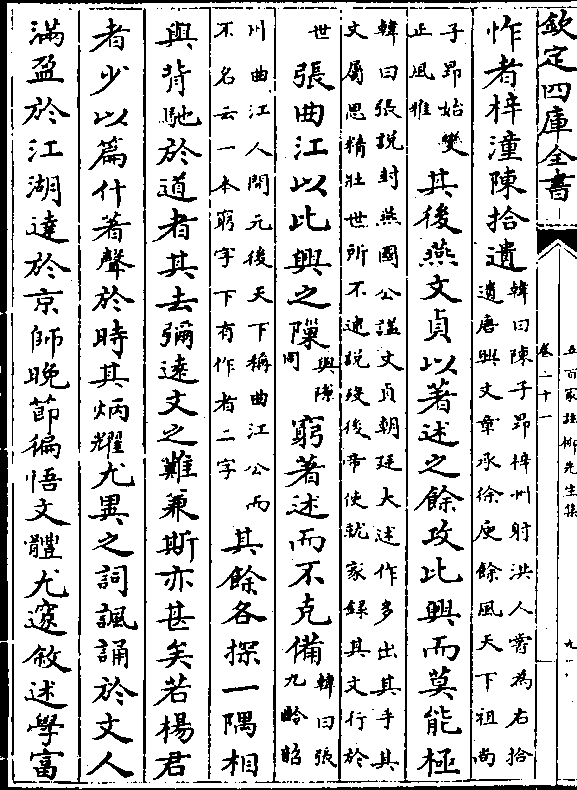 欽定四庫全書
五百家注柳先生集
卷二十一
九
怍者梓潼陳拾遺
韓曰陳子昂梓州射洪人嘗為右拾
遺唐興文章承徐庾餘風天下祖尚
子昂始變
正風雅
其後燕文貞以著述之餘攻比興而莫能極
韓曰張說封燕國公諡文貞朝廷大述作多出其手其
文屬思精壯世所不逮說歿後帝使就家録其文行於
世
張曲江以比興之隟
與隙
同
窮著述而不克備
韓曰張
九齡昭
川曲江人開元後天下稱曲江公而
不名云一本窮字下有作者二字
其餘各探一隅相
與背馳於道者其去彌逺文之難兼斯亦甚矣若楊君
者少以篇什著聲於時其炳耀尤異之詞諷誦於文人
滿盈於江湖達於京師晚節徧悟文體尤邃敘述學富